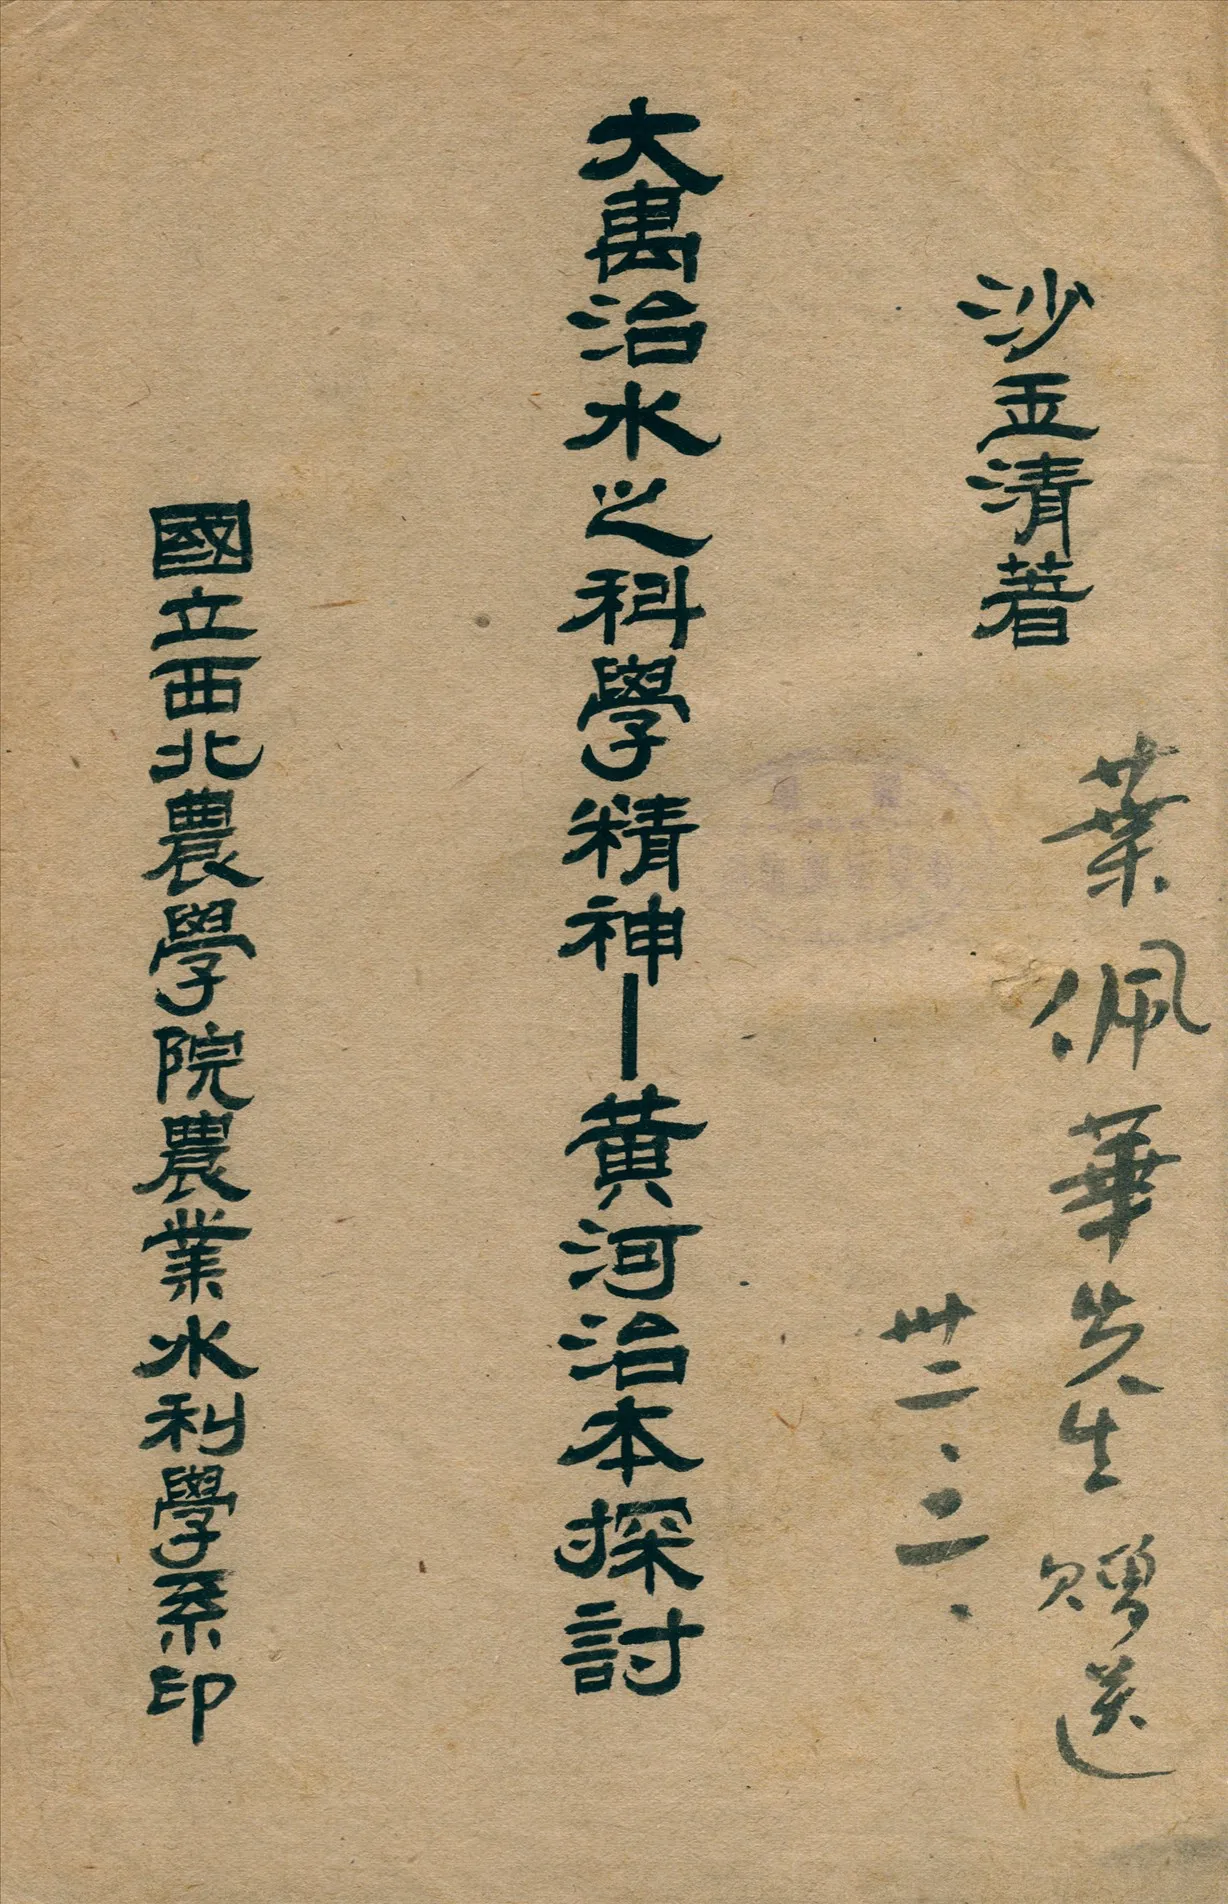 葉佩華先生 贈送
卅二、二、
沙玉清著
大禹治水之科學精神—黃河治本探討
國立西北農學院農業水利學系印